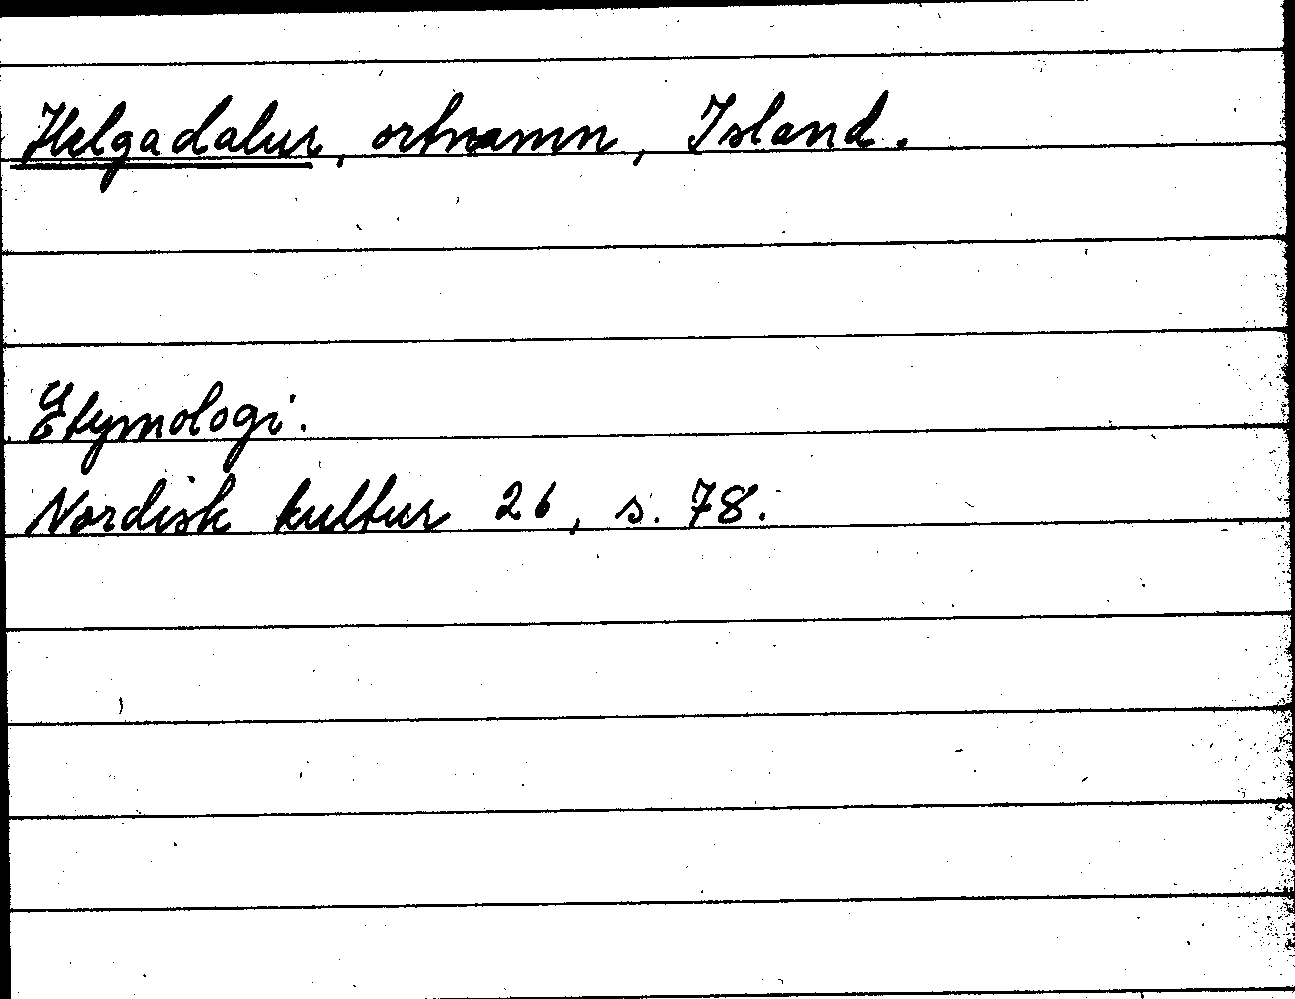 Helgadalur, ortnamn, Island.
Etymologi.
Nordisk kultur 26, s. 78.